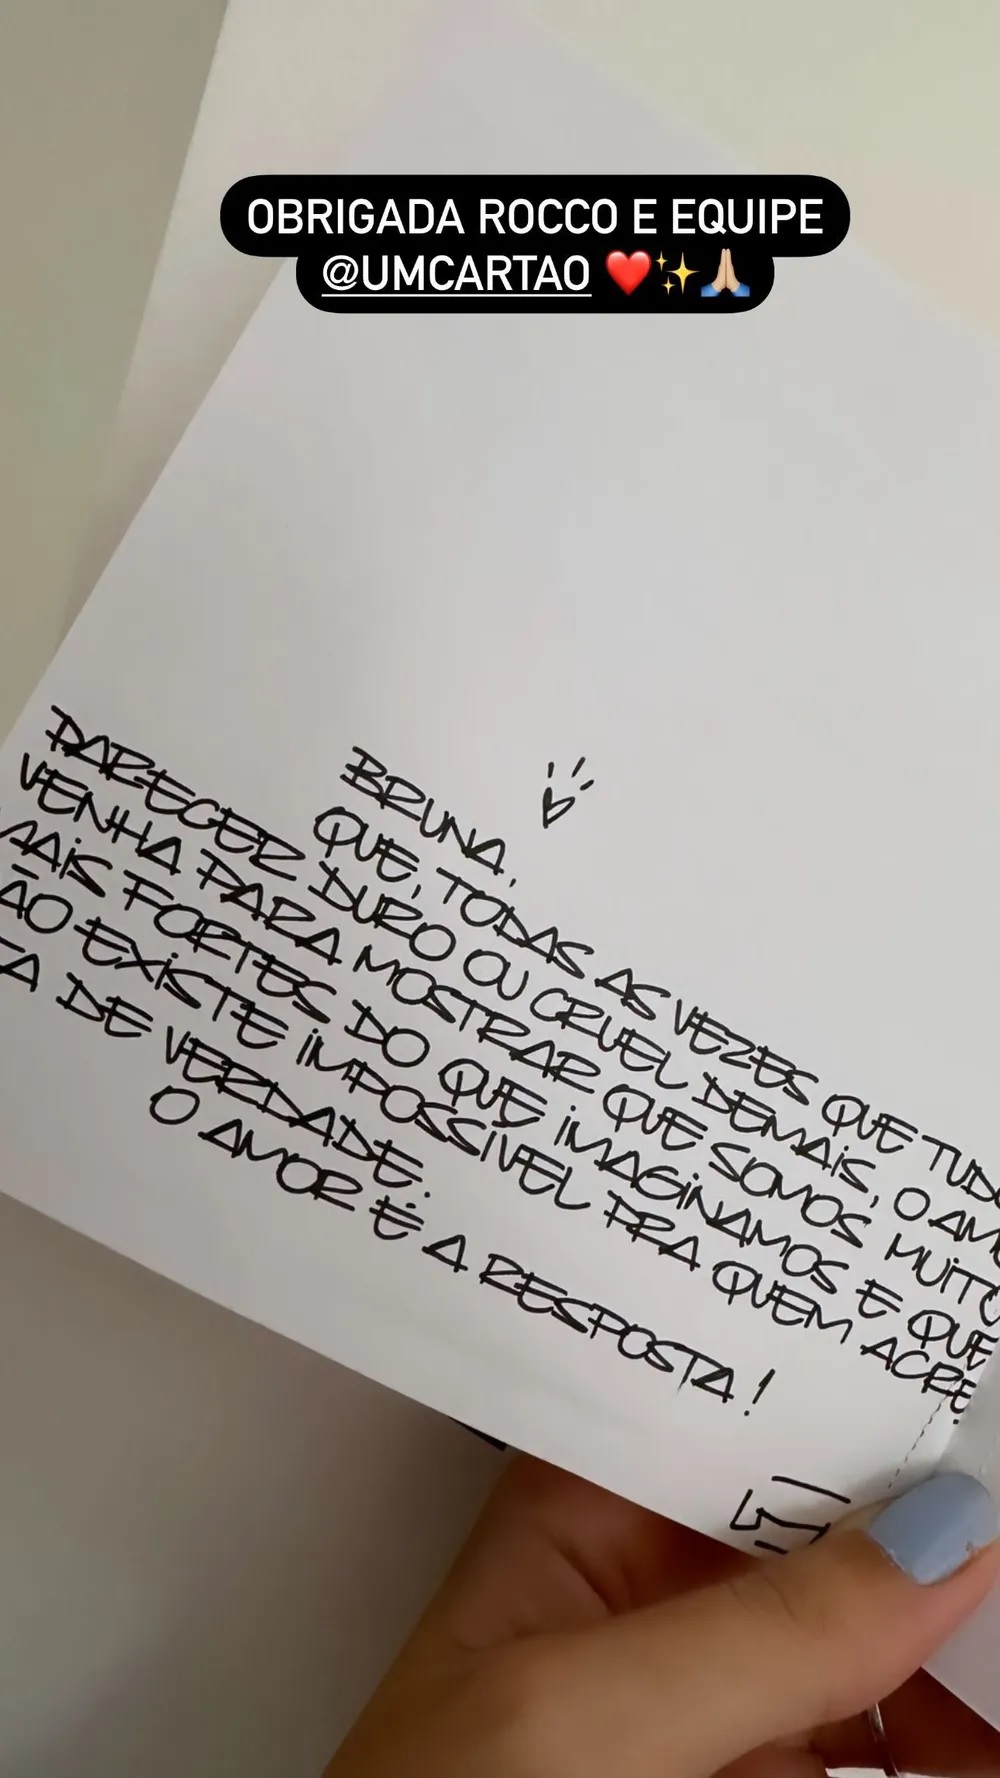 OBRIGADA ROCCO E EQUIPE
@UMCARTAO ❤️✨🙏🏼
BRUNA,
QUE, TODAS AS VEZES QUE TUDO
PARECER DURO OU CRUEL DEMAIS, O AMO
VENHA PARA MOSTRAR QUE SOMOS MUITO
MAIS FORTES DO QUE IMAGINAMOS E QUE
ÃO EXISTE IMPOSSÍVEL PRA QUEM ACRE
TA DE VERDADE.
O AMOR É A RESPOSTA!